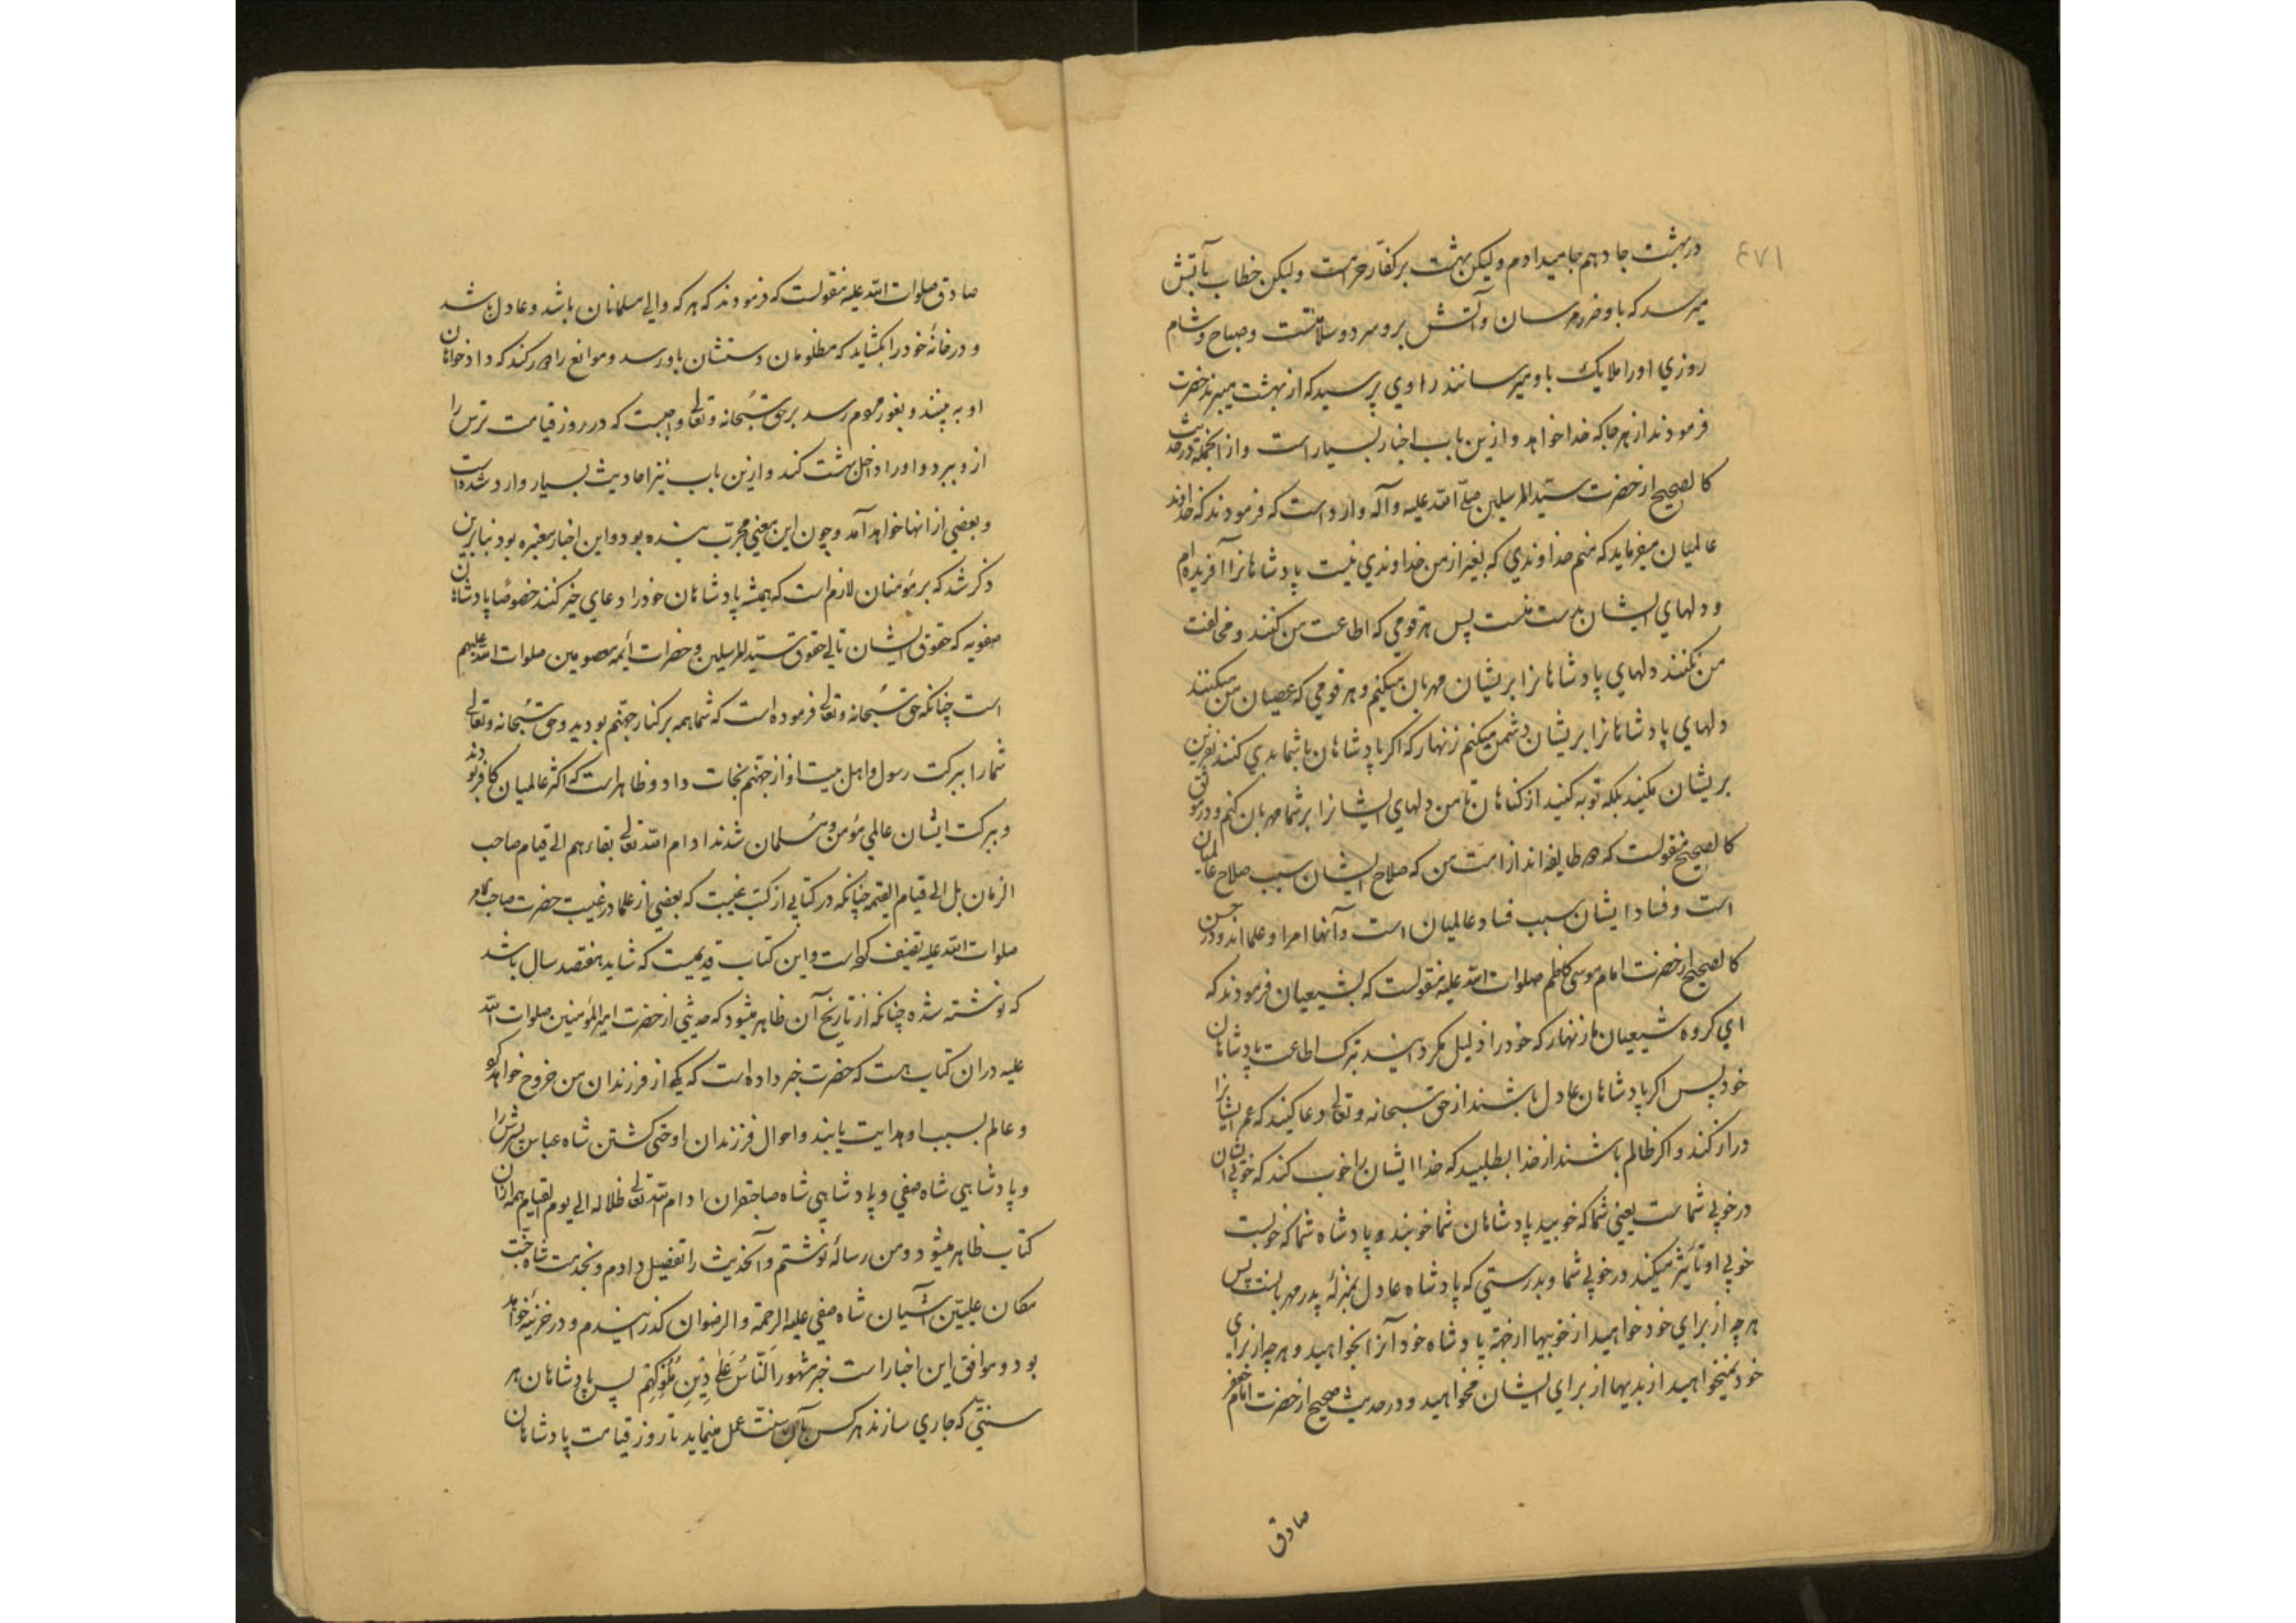 ٤٧١
در بهشت جا دهم جا میدادم و لیکن بهشت بر کفّار حرامست و لیکن خطاب بآتش
میرسد که باو ضرر مرسان و آتش برو سرد و سلامتست و صباح و شام
روزي او را ملایک باو میرسانند راوي پرسید که از بهشت میبرند حضرت
فرمودند از هر جا که خدا خواهد و ازین باب اخبار بسیار است و از انجمله در حدیث
کالصحیح از حضرت سیّد المرسلین صلّی الله علیه و آله وارد است که فرمودند که خداوند
عالمیان میفرماید که منم خداوندي که بغیر از من خداوندي نیست پادشاهانرا آفریده‌ام
و دلهاي ایشان بدست منست پس هر قومي که اطاعت من کنند و مخالفت
من نکنند دلهاي پادشاهانرا بریشان مهربان میکنم و هر قومي که عصیان من میکنند
دلهاي پادشاهانرا بریشان دشمن میکنم زنهار که اگر پادشاهان با شما بدي کنند نفرین
بریشان مکنید بلکه توبه کنید از گناهان تا من دلهاي ایشانرا بر شما مهربان کنم و در موثق
کالصحیح منقولست که دو طایفه‌اند از امت من که صلاح ایشان سبب صلاح عالمیان
است و فساد ایشان سبب فساد عالمیان است و آنها امرا و علما اند و در حسن
کالصحیح از حضرت امام موسی کاظم صلوات الله علیه منقولست که بشیعیان فرمودند که
اي گروه شیعیان ما زنهار که خود را ذلیل مگردانید بترک اطاعت پادشاهان
خود پس اگر پادشاهان عادل باشند از حق سبحانه و تعالی دعا کنید که عمر ایشانرا
دراز کند و اگر ظالم باشند از خدا بطلبید که خدا ایشان را خوب کند که خوبي ایشان
در خوبي شماست یعني شما که خوبید پادشاهان شما خوبند و پادشاه شما که خوبست
خوبي او تأثیر میکند در خوبي شما و بدرستي که پادشاه عادل بمنزلهٔ پدر مهربانست پس
هر چه از براي خود خواهید از خوبیها از جهة پادشاه خود آنرا بخواهید و هر چه از براي
خود نمیخواهید از بدیها از براي ایشان مخواهید و در حدیث صحیح از حضرت امام جعفر
صادق
صادق صلوات الله علیه منقولست که فرمودند که هر که والي مسلمانان باشد و عادل باشد
و در خانهٔ خود را بگشاید که مظلومان دستشان باو رسد و موانع را دور کند که دادخواهان
او به بینند و بغور مردم رسد بر حق سبحانه و تعالی واجبست که در روز قیامت ترس را
ازو ببرد و او را داخل بهشت کند و ازین باب نیز احادیث بسیار وارد شده است
و بعضي از انها خواهد آمد و چون این معني مجرّب بنده بود و این اخبار معتبره بود بنابرین
ذکر شد که بر مؤمنان لازم است که همیشه پادشاهان خود را دعاي خیر کنند خصوصًا پادشاهان
صفویه که حقوق ایشان تالي حقوق سیّد المرسلین و حضرات أئمه معصومین صلوات الله علیهم
است چنانکه حق سُبحانه و تعالی فرموده است که شما همه بر کنار جهنّم بودید و حق سُبحانه و تعالی
شما را ببرکت رسول و اهل بیت او از جهنّم نجات داد و ظاهر است که اکثر عالمیان کافر بودند
و ببرکت ایشان عالمي مؤمن و مُسلمان شدند ادام الله تعالی بقاءهم الي قیام صاحب
الزمان بل الي قیام القیمه چنانکه در کتابي از کتب غیبت که بعضي از علما در غیبت حضرت صاحب الامر
صلوات الله علیه تصنیف کرده است و این کتاب قدیمیست که شاید هفتصد سال باشد
که نوشته شده چنانکه از تاریخ آن ظاهر میشود که حدیثي از حضرت امیر المؤمنین صلوات الله
علیه در ان کتاب هست که حضرت خبر داده است که یکي از فرزندان من خروج خواهد کرد
و عالم بسبب او هدایت یابند و احوال فرزندان او حتي کشتن شاه عباس پسرش را
و پادشاهي شاه صفي و پادشاهي شاه صاحبقران ادام الله تعالی ظلاله الي یوم القیام همه از ان
کتاب ظاهر میشود و من رسالهٔ نوشتم و آنحدیث را تفصیل دادم و بخدمت شاه جنّت
مکان علیین آشیان شاه صفي علیه الرحمة و الرضوان گذرانیدم و در خزینه خواهد
بود و موافق این اخبار است خبر مشهور اَلنّاسُ عَلی دِیْنِ مُلُوکِهِم پس پادشاهان هر
سنتّي که جاري سازند هر کس بآن سنت عمل مینماید تا روز قیامت پادشاهان